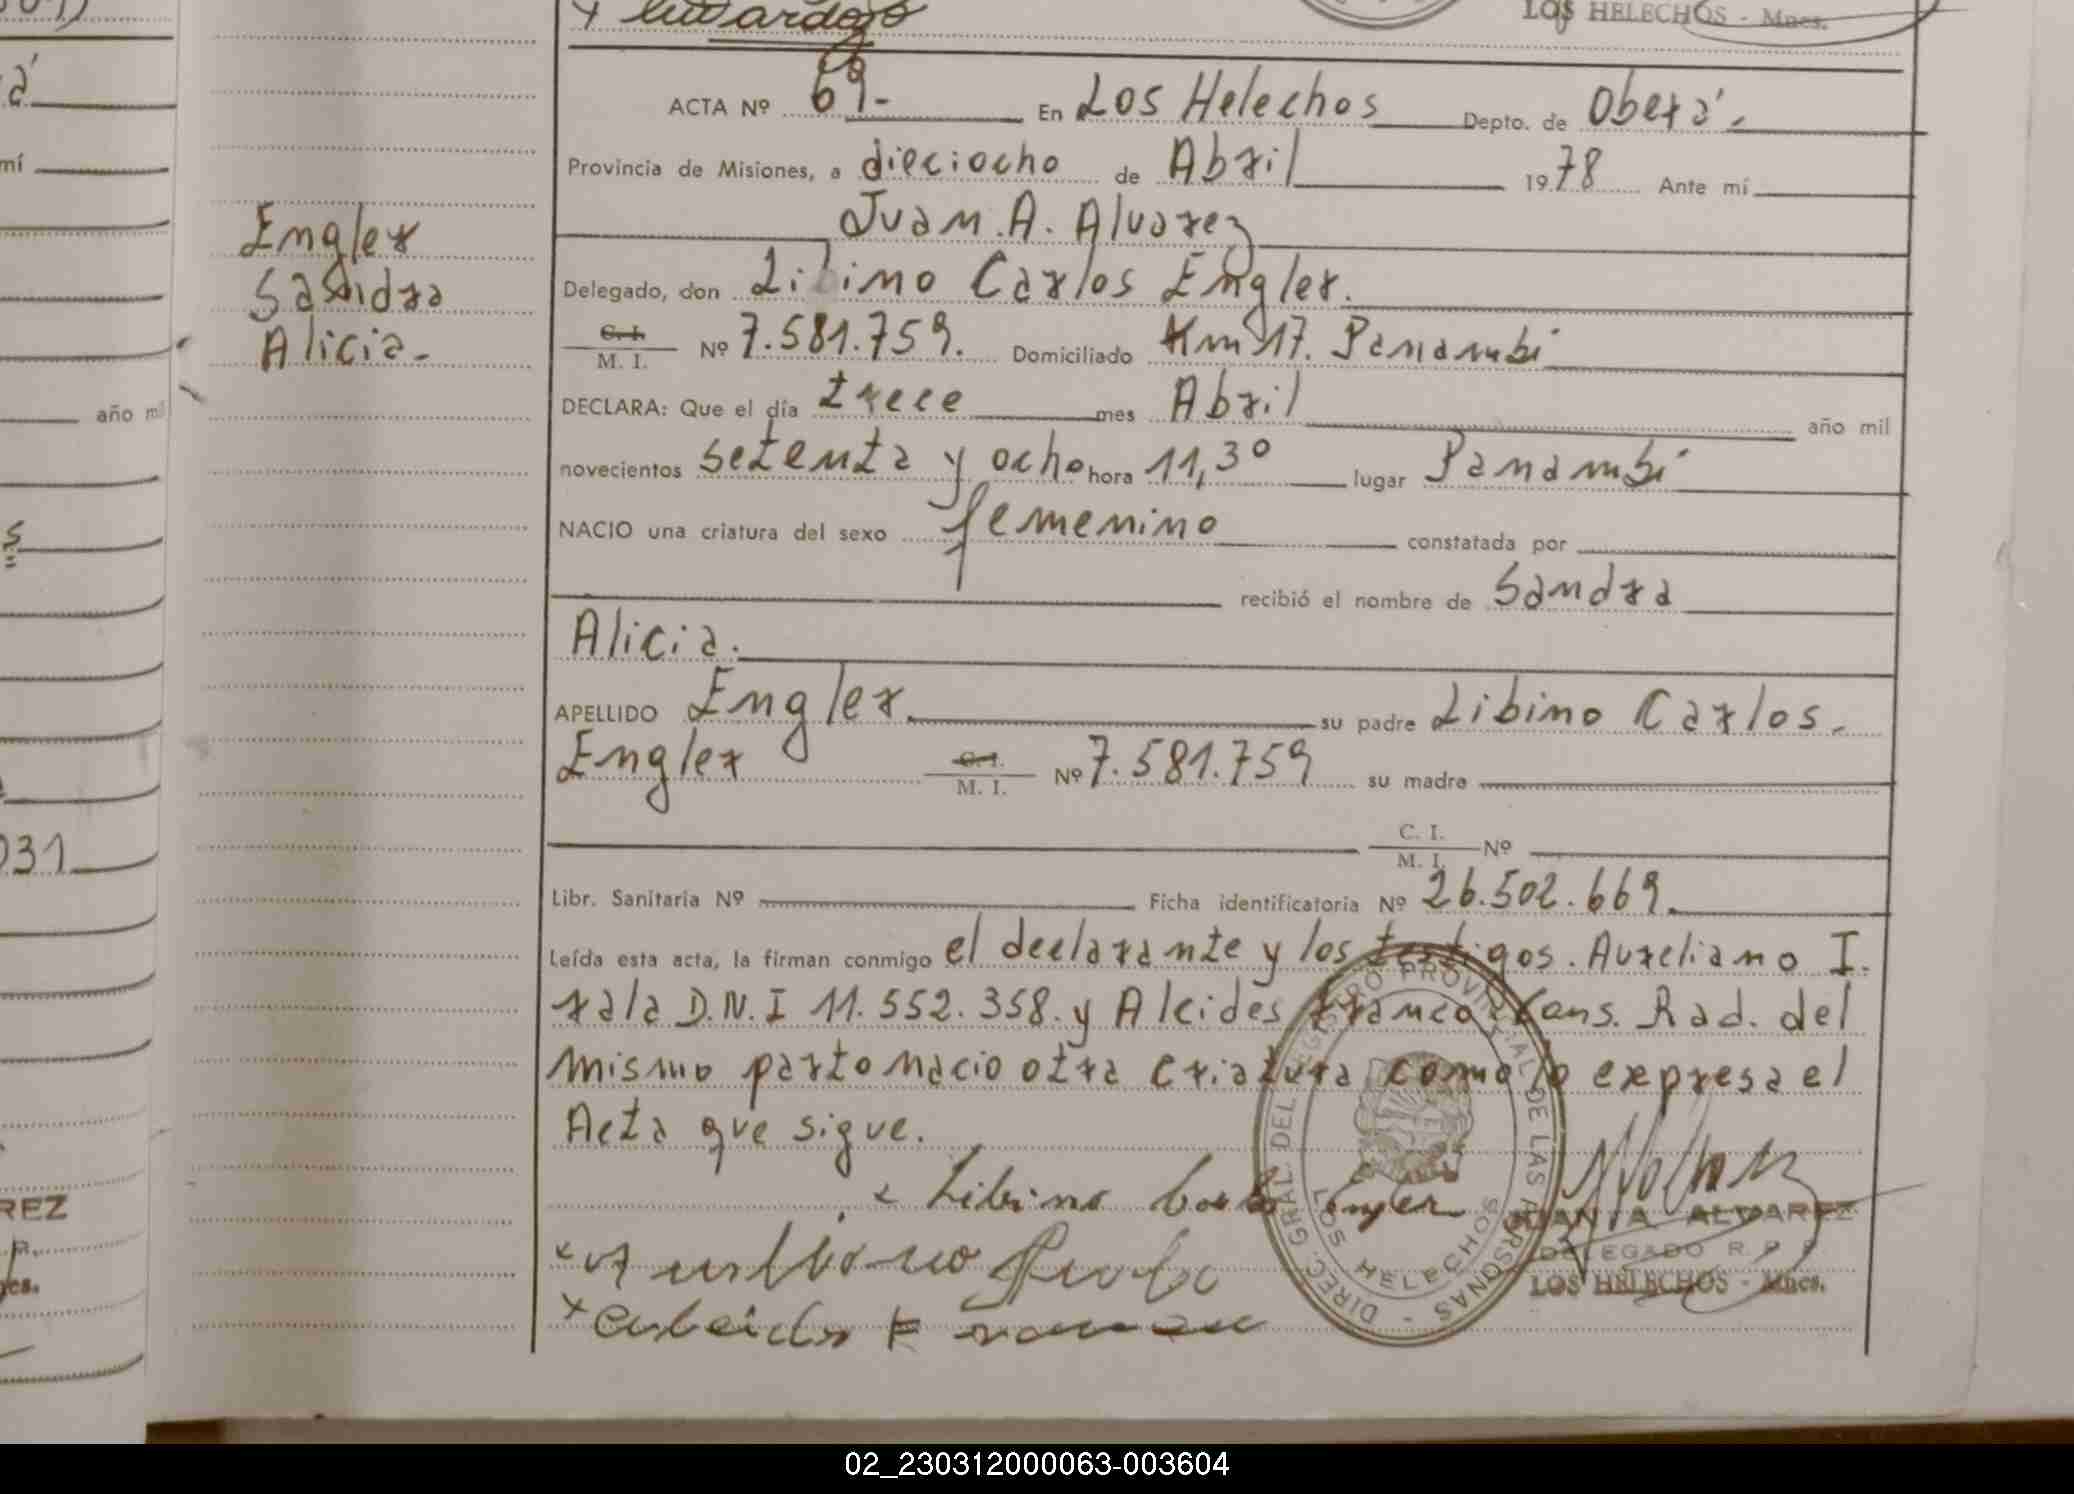 LOS HELECHOS - Mnes.
ACTA Nº 69.- En Los Helechos Depto. de Oberá.
Provincia de Misiones, a dieciocho de Abril 1978 Ante mí
Juan. A. Alvarez
Delegado, don Libino Carlos Engler.
C. I. M. I. Nº 7.581.759. Domiciliado Km 17. Panambí
DECLARA: Que el día trece mes Abril año mil
novecientos setenta y ocho hora 11,30 lugar Panambí
NACIO una criatura del sexo femenino constatada por
recibió el nombre de Sandra
Alicia.
APELLIDO Engler. su padre Libino Carlos.
Engler C. I. M. I. Nº 7.581.759 su madre
C. I. M. I. Nº
Libr. Sanitaria Nº Ficha identificatoria Nº 26.502.669.
Leída esta acta, la firman conmigo el declarante y los testigos. Aureliano I.
rala D.N.I 11.552.358. y Alcides franco Cons. Rad. del
mismo parto nacio otra criatura como lo expresa el
Acta que sigue.
Libino Carlos Engler
JUAN A. ALVAREZ
DELEGADO R. P. P.
LOS HELECHOS - Mnes.
DIREC. GRAL. DEL REGISTRO PROVINCIAL DE LAS PERSONAS -
LOS HELECHOS
Engler
Sandra
Alicia.-
mí
año mil
031
REZ
02_230312000063-003604